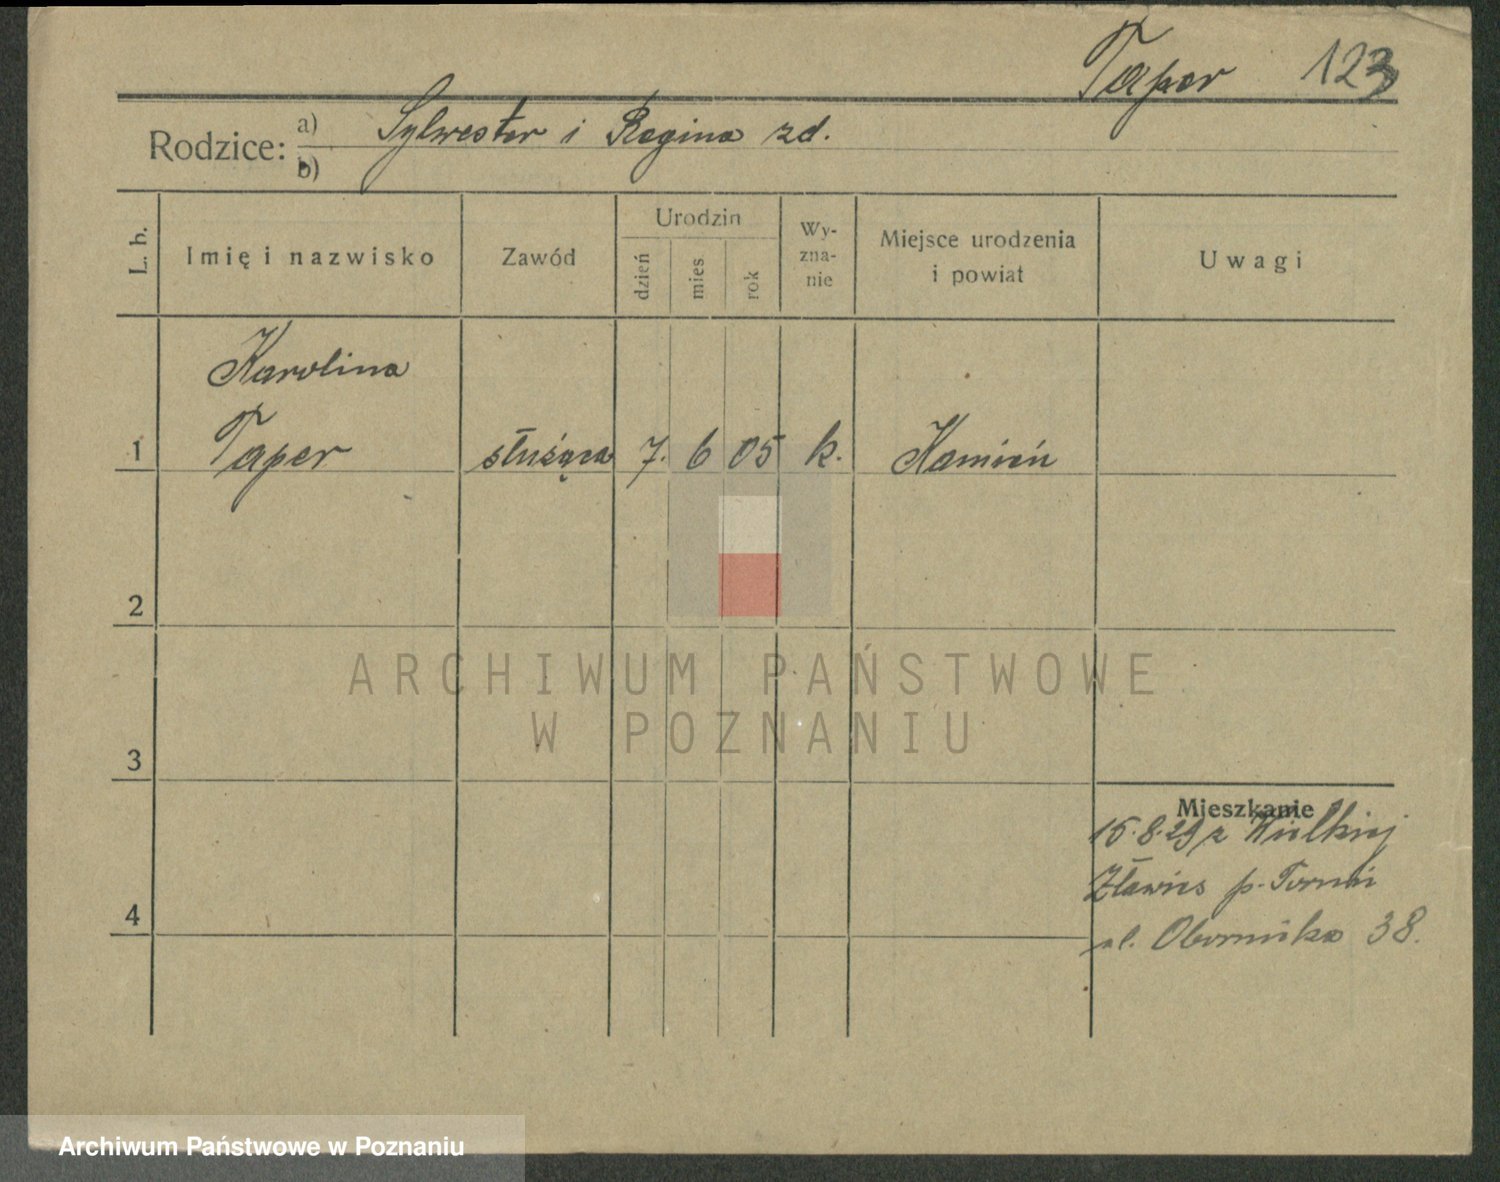 Taper 123
Rodzice: a) Sylwester i Regina zd.
b)
L. b. Imię i nazwisko Zawód Urodzin dzień mies rok Wy-zna-nie Miejsce urodzenia i powiat Uwagi
Karolina
1 Taper służąca 7. 6 05 k. Kamień
2
ARCHIWUM PAŃSTWOWE
W POZNANIU
3
Mieszkanie
15.8.29 z Wielkiej
4 Zławies p. Toruń
ul. Obornicka 38.
Archiwum Państwowe w Poznaniu